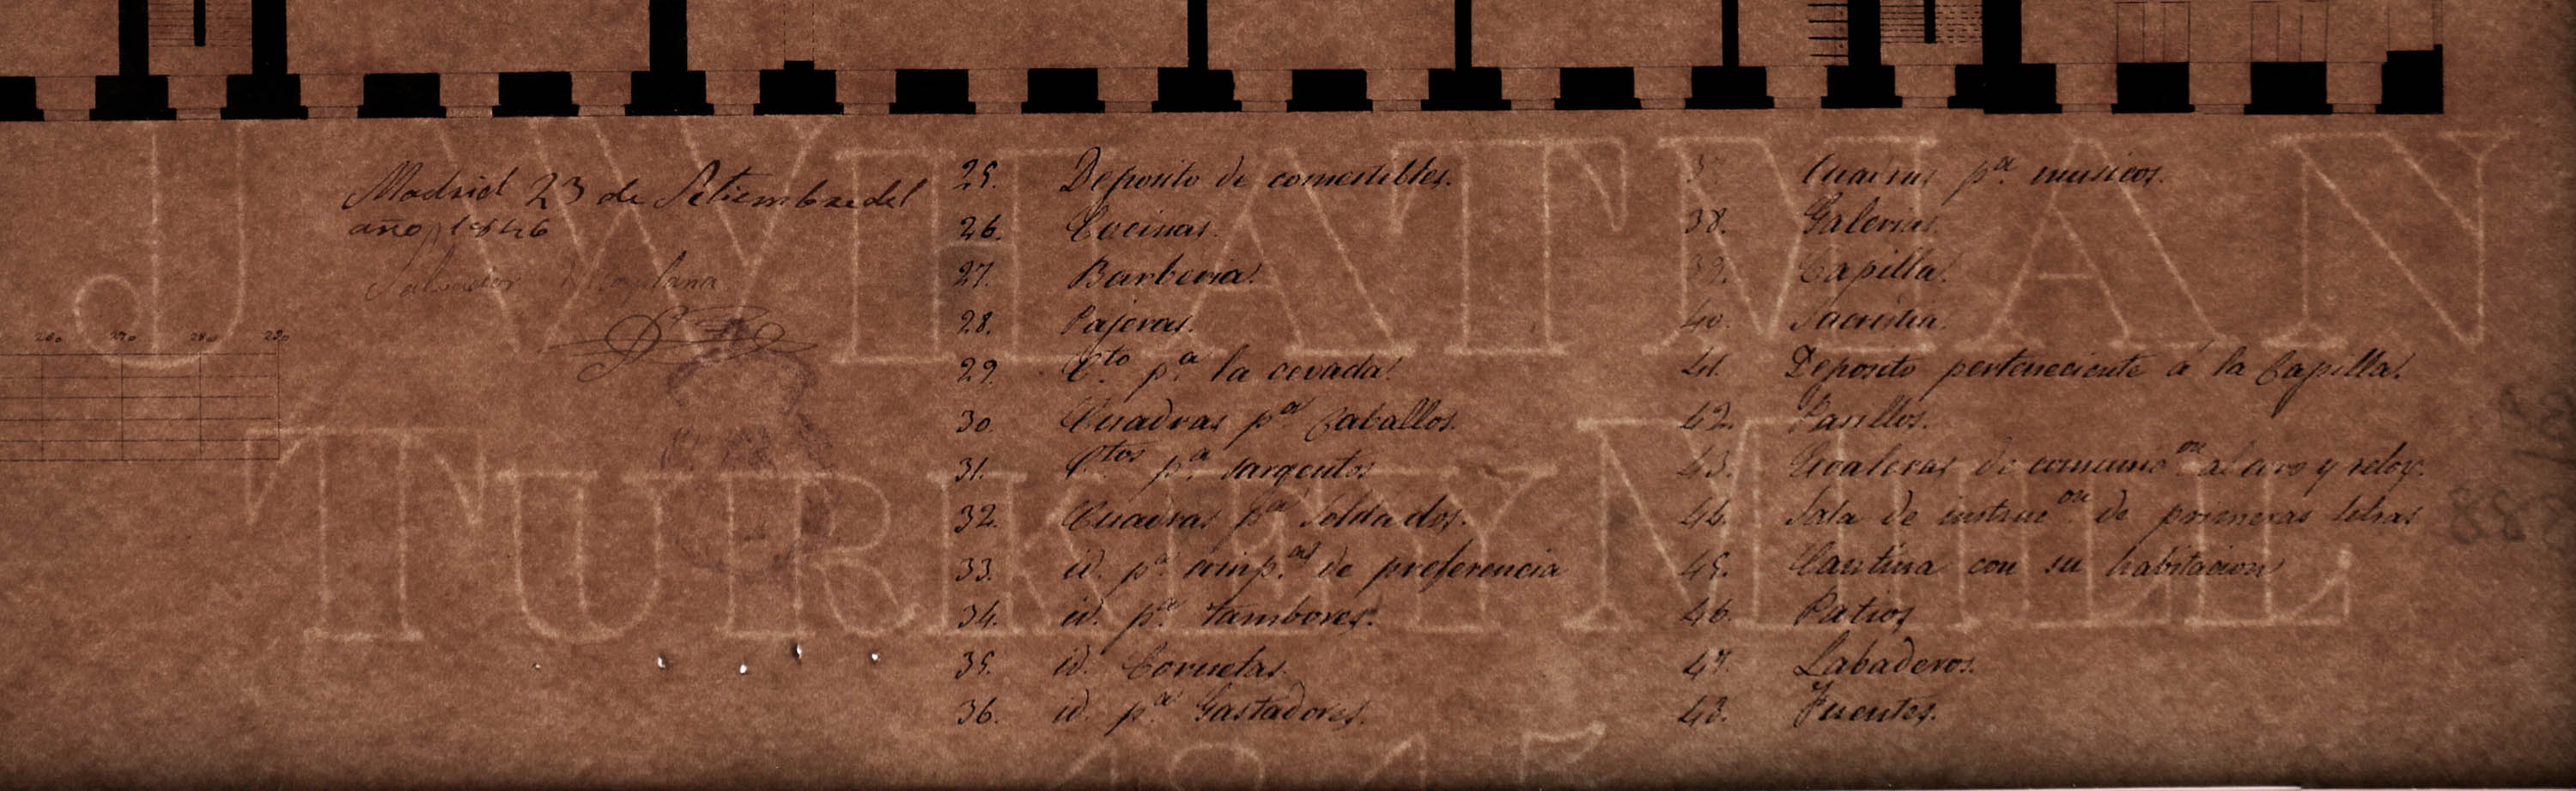 Madrid 23 de Setiembre del
año 1846
Salvador
260 270 280 290
25. Deposito de comestibles.
26. Cocinas.
27. Barberia.
28. Pajeras.
29. C.to p.a la cevada.
30. Cuadras p.a Caballos.
31. C.tos p.a sargentos
32. Cuadras p.a Soldados.
33. id. p.a comp.as de preferencia
34. id. p.a tambores.
35. id. Cornetas.
36. id. p.a Gastadores.
37. Cuadras p.a musicos.
38. Galerias.
39. Capilla.
40. Sacristia.
41. Deposito perteneciente á la Capilla.
42. Pasillos.
43. Escaleras de comunic.on al coro y relox.
44. Sala de instruc.on de primeras letras
45. Cantina con su habitacion
46. Patios
47. Labaderos.
48. Fuentes.
J WHATMAN
TURKEY MILL
1845